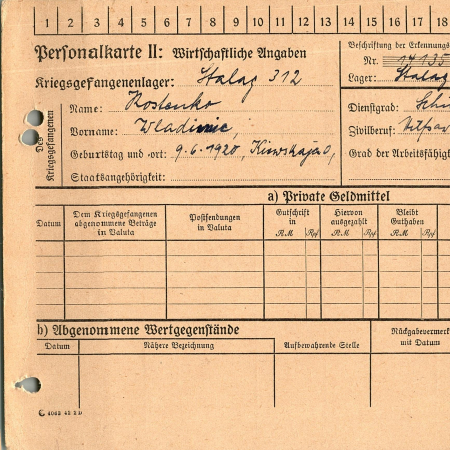 1 2 3 4 5 6 7 8 9 10 11 12 13 14 15 16 17 18
Personalkarte II: Wirtschaftliche Angaben
Beschriftung der Erkennungs
Nr. 14135
Kriegsgefangenenlager: Stalag 312
Lager: Stalag
Des Kriegsgefangenen
Name: Kostenko
Vorname: Wladimir,
Geburtstag und -ort: 9.6.1920,
Staatsangehörigkeit:
Dienstgrad:
Zivilberuf:
Grad der Arbeitsfähigk
a) Private Geldmittel
Datum
Dem Kriegsgefangenen abgenommene Beträge in Valuta
Postsendungen in Valuta
Gutschrift in
RM Rpf
Hiervon ausgezahlt
RM Rpf
Bleibt Guthaben
RM Rpf
b) Abgenommene Wertgegenstände
Datum
Nähere Bezeichnung
Aufbewahrende Stelle
Rückgabevermerk mit Datum